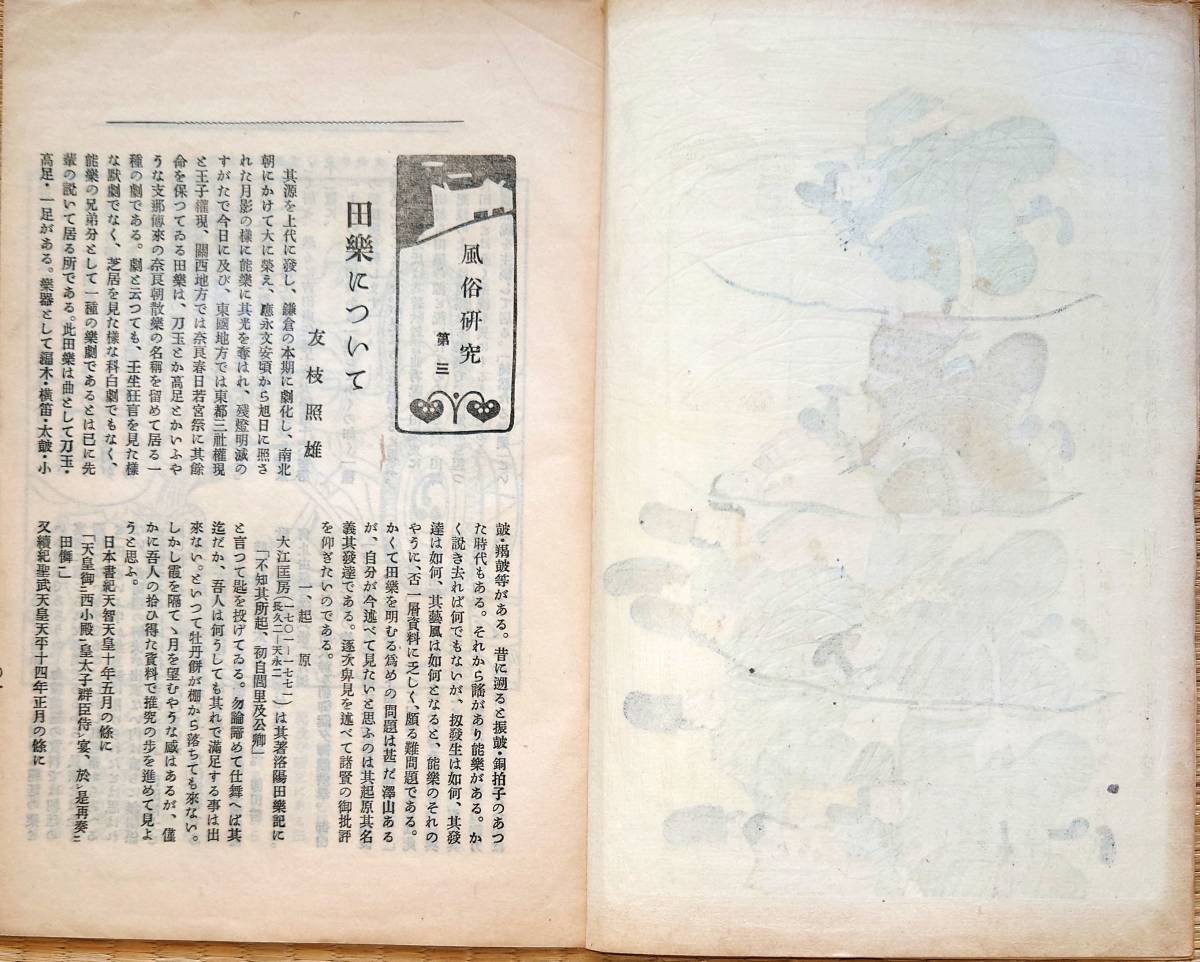 風俗研究
第三
田樂について
友枝照雄
其源を上代に發し、鎌倉の本期に劇化し、南北
朝にかけて大に榮え、應永文安頃から旭日に照さ
れた月影の樣に能樂に其光を奪はれ、殘燈明滅の
すがたで今日に及び、東國地方では東都三社權現
と王子權現、關西地方では奈良春日若宮祭に其餘
命を保つてゐる田樂は、刀玉とか高足とかいふや
うな支那傳來の奈良朝散樂の名稱を留めて居る一
種の劇である。劇と云つても、壬生狂言を見た樣
な默劇でなく、芝居を見た樣な科白劇でもなく、
能樂の兄弟分として一種の樂劇であるとは已に先
輩の説いて居る所である。此田樂は曲として刀玉・
高足・一足がある。樂器として編木・橫笛・太皷・小
皷・羯皷等がある。昔に遡ると振皷・銅拍子のあつ
た時代もある。それから謠があり能樂がある。か
く説き去れば何でもないが、扨發生は如何、其發
達は如何、其藝風は如何となると、能樂のそれの
やうに、否一層資料に乏しく、頗る難問題である。
かくて田樂を明むる爲めの問題は甚だ澤山ある
が、自分が今述べて見たいと思ふのは其起原其名
義其發達である。逐次卑見を述べて諸賢の御批評
を仰ぎたいのである。
一、起原
大江匡房(一七〇一—一七七一 長久二—天永二)は其著洛陽田樂記に
「不知其所起、初自閭里及公卿」
と言つて匙を投げてゐる。勿論諦めて仕舞へば其
迄だか、吾人は何うしても其れで滿足する事は出
來ない。といつて牡丹餠が棚から落ちても來ない。
しかし霞を隔てゝ月を望むやうな感はあるが、僅
かに吾人の拾ひ得た資料で推究の步を進めて見よ
うと思ふ。
日本書紀天智天皇十年五月の條に
「天皇御ニ西小殿ニ皇太子群臣侍レ宴、於レ是再奏ニ
田儛ニ」
又續紀聖武天皇天平十四年正月の條に